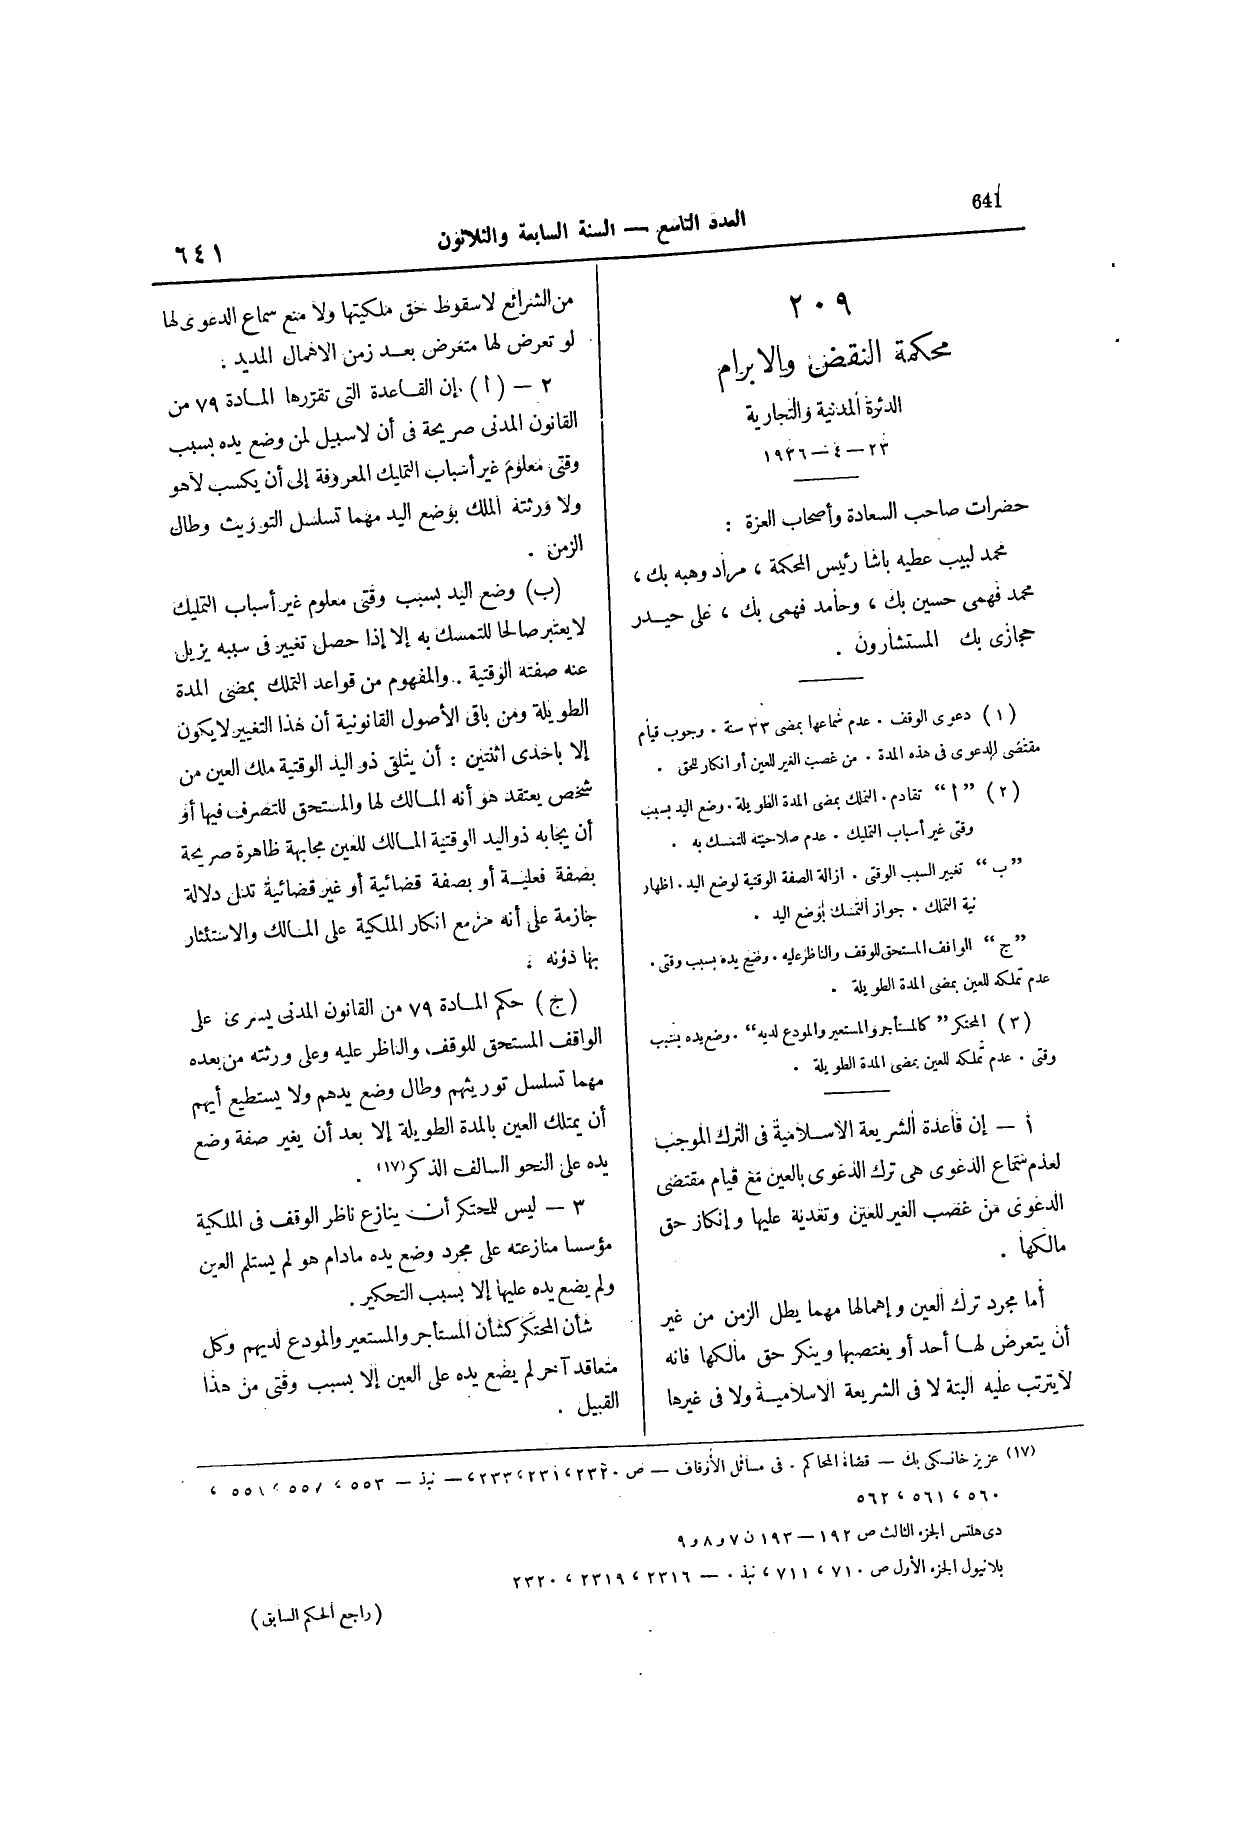 641
العدد التاسع — السنة السابعة والثلاثون
٦٤١
٢٠٩
محكمة النقض والابرام
الدئرة المدنية والتجارية
٢٣ — ٤ — ١٩٣٦
حضرات صاحب السعادة وأصحاب العزة :
محمد لبيب عطيه باشا رئيس المحكمة ، مراد وهبه بك ،
محمد فهمى حسين بك ، وحامد فهمى بك ، على حيدر
حجازى بك المستشارون .
(١) دعوى الوقف . عدم سماعها بمضى ٣٣ سنة . وجوب قيام
مقتضى الدعوى فى هذه المدة . من غصب الغير للعين أو انكار للحق .
(٢) ”أ“ تقادم . التملك بمضى المدة الطويلة . وضع اليد بسبب
وقتى غير أسباب التمليك . عدم صلاحيته للتمسك به .
”ب“ تغيير السبب الوقتى . ازالة الصفة الوقتية لوضع اليد . اظهار
نية التملك . جواز التمسك بوضع اليد .
”ج“ الواقف المستحق للوقف والناظر عليه . وضع يده بسبب وقتى .
عدم تملكه للعين بمضى المدة الطويلة .
(٣) المحتكر ”كالمستأجر والمستعير والمودع لديه“ . وضع يده بسبب
وقتى . عدم تملكه للعين بمضى المدة الطويلة .
أ — إن قاعدة الشريعة الاسلامية فى الترك الموجب
لعدم سماع الدعوى هى ترك الدعوى بالعين مع قيام مقتضى
الدعوى من غصب الغير للعين وتعدية عليها وإنكار حق
مالكها .
أما مجرد ترك العين وإهمالها مهما يطل الزمن من غير
أن يتعرض لها أحد أو يغتصبها وينكر حق مالكها فانه
لا يترتب عليه البتة لا فى الشريعة الاسلامية ولا فى غيرها
من الشرائع لاسقوط حق ملكيتها ولا منع سماع الدعوى لها
لو تعرض لها متعرض بعد زمن الاهمال المديد .
٢ — (أ) إن القاعدة التى تقررها المادة ٧٩ من
القانون المدنى صريحة فى أن لاسبيل لمن وضع يده بسبب
وقتى معلوم غير أسباب التمليك المعروفة إلى أن يكسب لاهو
ولا ورثته الملك بوضع اليد مهما تسلسل التوريث وطال
الزمن .
(ب) وضع اليد بسبب وقتى معلوم غير أسباب التمليك
لا يعتبر صالحا للتمسك به إلا إذا حصل تغيير فى سببه يزيل
عنه صفته الوقتية .. والمفهوم من قواعد التملك بمضى المدة
الطويلة ومن باقى الأصول القانونية أن هذا التغيير لا يكون
إلا باحدى اثنتين : أن يتلقى ذو اليد الوقتية ملك العين من
شخص يعتقد هو أنه المالك لها والمستحق للتصرف فيها أو
أن يجابه ذو اليد الوقتية المالك للعين مجابهة ظاهرة صريحة
بصفة فعلية أو بصفة قضائية أو غير قضائية تدل دلالة
جازمة على أنه مزمع انكار الملكية على المالك والاستئثار
بها دونه .
(ج) حكم المادة ٧٩ من القانون المدنى يسرى على
الواقف المستحق للوقف، والناظر عليه وعلى ورثته من بعده
مهما تسلسل توريثهم وطال وضع يدهم ولا يستطيع أيهم
أن يمتلك العين بالمدة الطويلة إلا بعد أن يغير صفة وضع
يده على النحو السالف الذكر (١٧) .
٣ — ليس للمحتكر أن ينازع ناظر الوقف فى الملكية
مؤسسا منازعته على مجرد وضع يده مادام هو لم يستلم العين
ولم يضع يده عليها إلا بسبب التحكير .
شأن المحتكر كشأن المستأجر والمستعير والمودع لديهم وكل
متعاقد آخر لم يضع يده على العين إلا بسبب وقتى من هذا
القبيل .
(١٧) عزيز خانكى بك — قضاة المحاكم . فى مسائل الأوقاف — ص ٢٣٠، ٢٣١، ٢٣٣، — نبذ — ٥٥٣ ، ٥٥٧ ، ٥٥٨ ،
٥٦٠ ، ٥٦١ ، ٥٦٢
دى هلتس الجزء الثالث ص ١٩٢ — ١٩٣ ن ٧ و ٨ و ٩
بلانيول الجزء الأول ص ٧١٠ ، ٧١١ ، نبذ . — ٢٣١٦ ، ٢٣١٩ ، ٢٣٢٠
(راجع الحكم السابق)